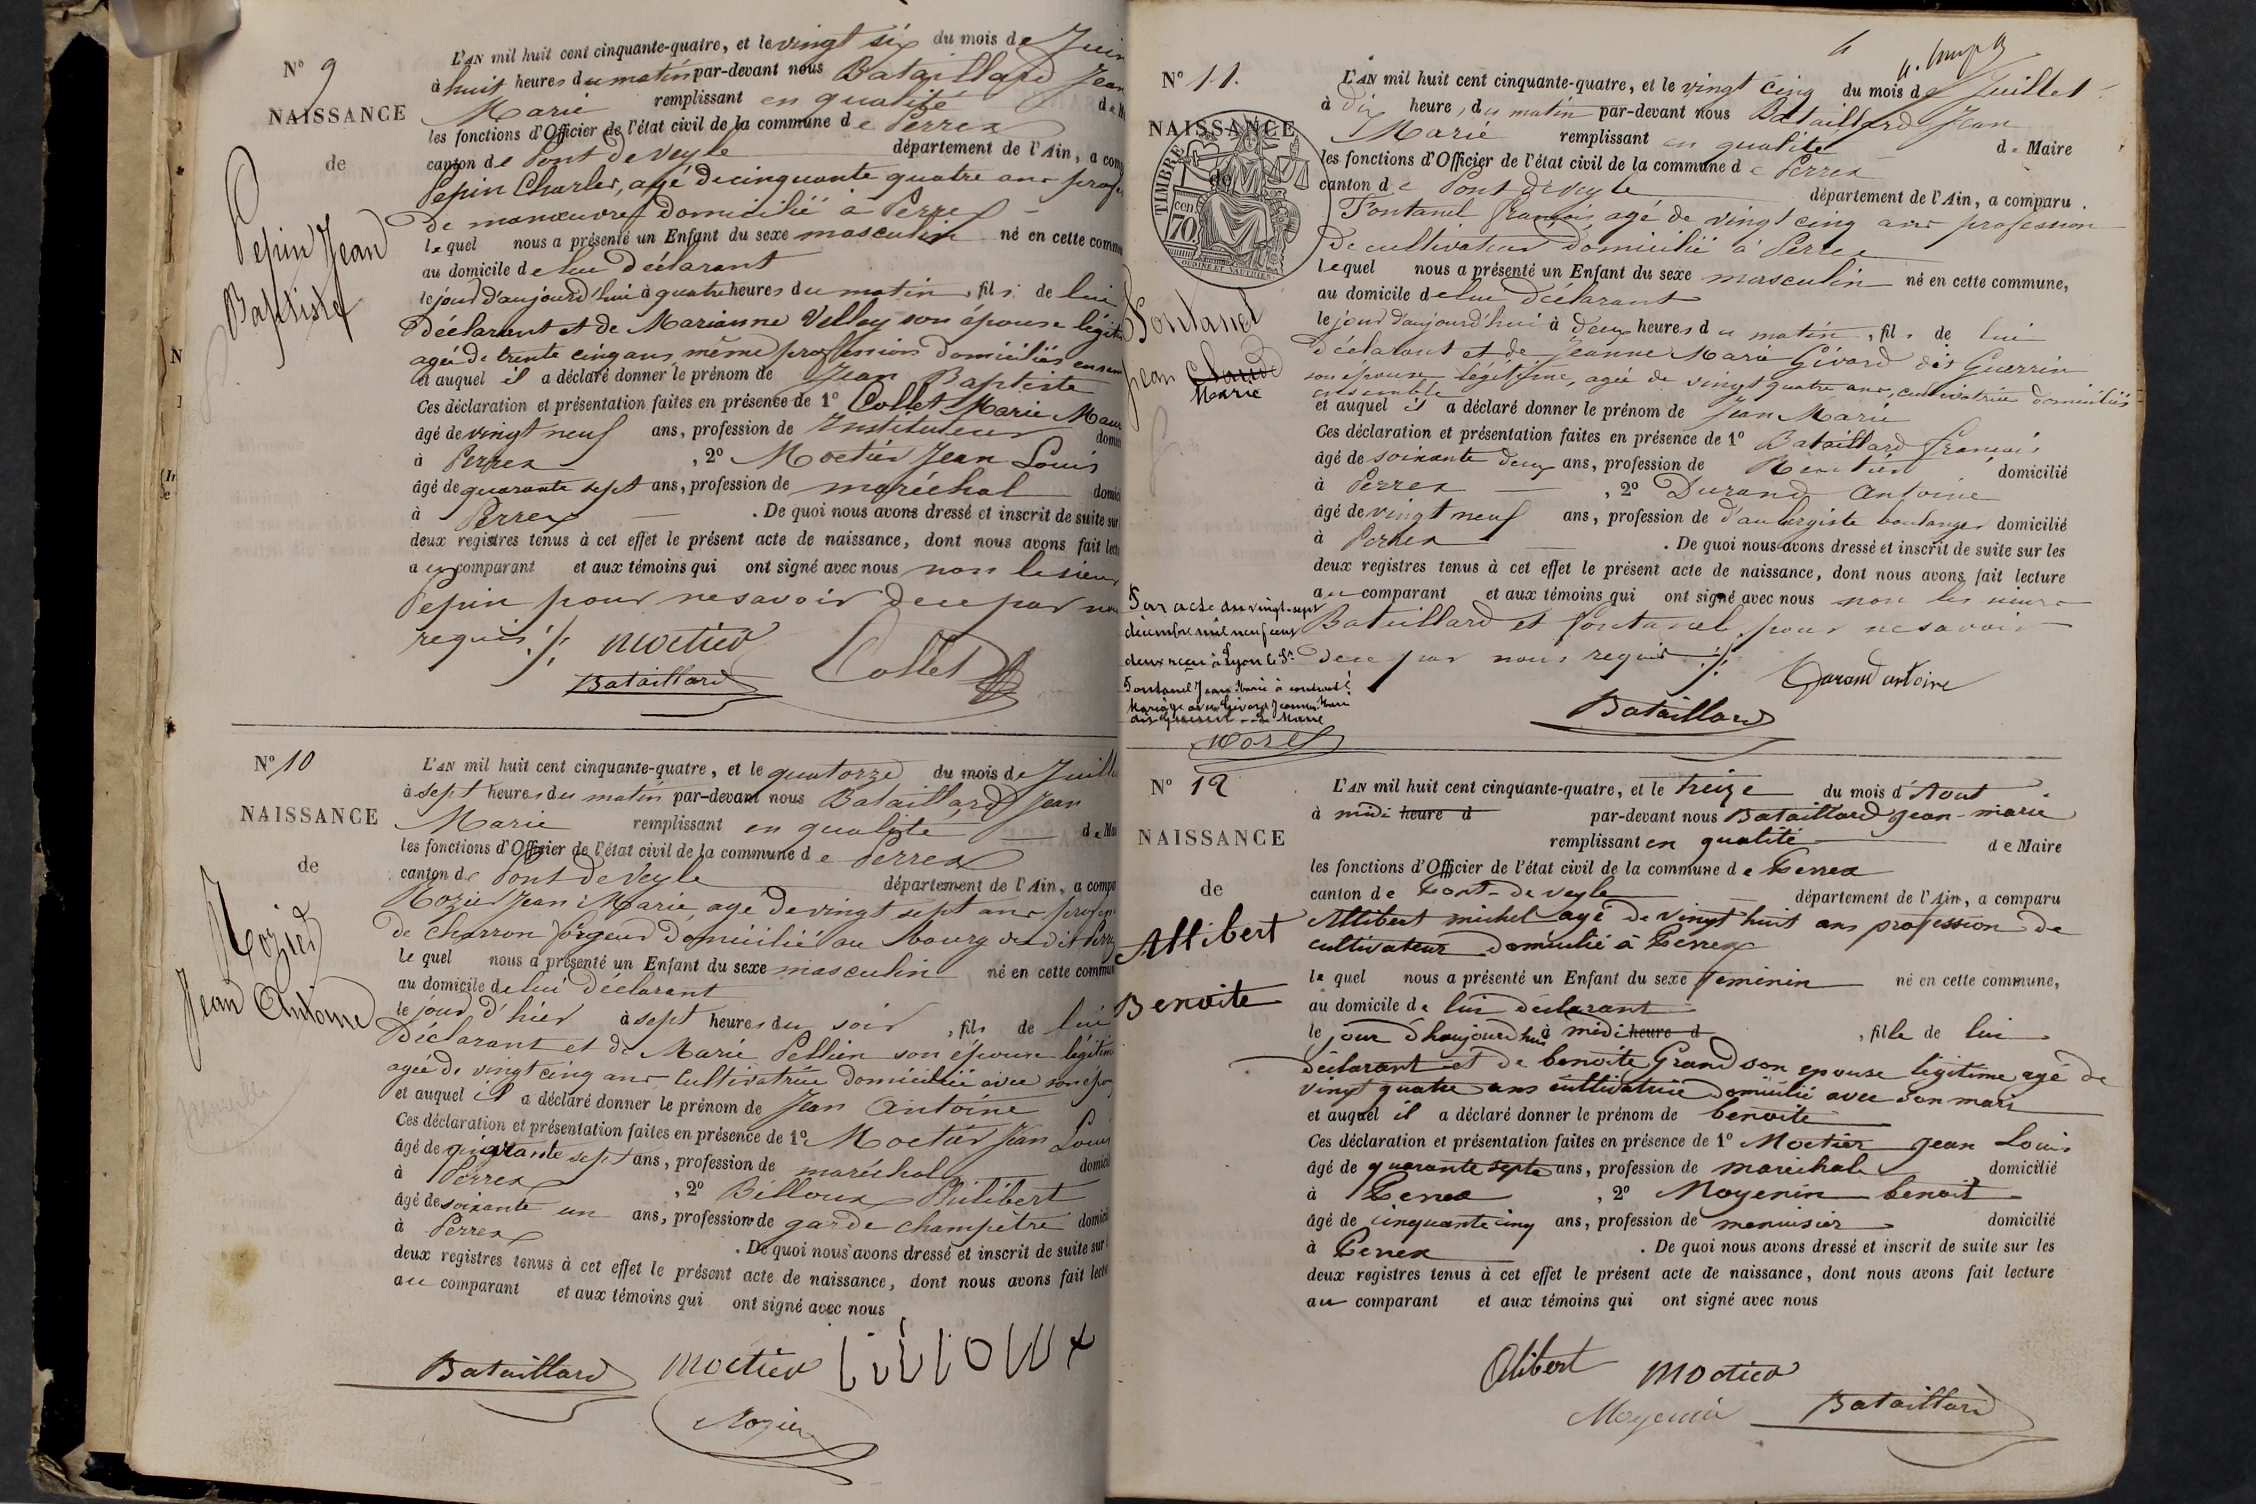 N° 9
NAISSANCE
de
Pepin Jean
Baptiste
L'AN mil huit cent cinquante-quatre, et le vingt six du mois de Juin
à huit heures du matin par-devant nous Bataillard Jean
Marie remplissant en qualité de M
les fonctions d'Officier de l'état civil de la commune de Perrex
canton de Pont de Veyle département de l'Ain, a comp
Pepin Charles, agé de cinquante quatre ans profes
de manœuvre domicilié à Perrex
lequel nous a présenté un Enfant du sexe masculin né en cette commun
au domicile de lui déclarant
le jour d'aujourd'hui à quatre heures du matin, fils de lui
déclarant et de Marianne Velley son épouse légiti
agée de trente cinq ans même profession domiciliés ensem
et auquel il a déclaré donner le prénom de Jean Baptiste
Ces déclaration et présentation faites en présence de 1° Collet Marie
âgé de vingt neuf ans, profession de Instituteur domi
à Perrex, 2° Moctier Jean Louis
âgé de quarante sept ans, profession de maréchal domici
à Perrex. De quoi nous avons dressé et inscrit de suite sur
deux registres tenus à cet effet le présent acte de naissance, dont nous avons fait lect
au comparant et aux témoins qui ont signé avec nous non le sieur
Pepin pour ne savoir de ce par nous
requis ./.
Moctier
Collet
Bataillard
N° 10
NAISSANCE
de
Rozier
Jean Antoine
L'AN mil huit cent cinquante-quatre, et le quatorze du mois de Juillet
à sept heures du matin par-devant nous Bataillard Jean
Marie remplissant en qualité de Mai
les fonctions d'Officier de l'état civil de la commune de Perrex
canton de Pont de Veyle département de l'Ain, a compa
Rozier Jean Marie agé de vingt sept ans profes
de charron forgeur domicilié au bourg du dit Perrex
lequel nous a présenté un Enfant du sexe masculin né en cette commun
au domicile de lui déclarant
le jour d'hier à sept heures du soir, fils de lui
Déclarant et de Marie Pellin son épouse légitim
agée de vingt cinq ans Cultivatrice domiciliée avec son
et auquel il a déclaré donner le prénom de Jean Antoine
Ces déclaration et présentation faites en présence de 1° Moctier Jean Louis
âgé de quarante sept ans, profession de maréchal domicil
à Perrex, 2° Billoux Philibert
âgé de soixante un ans, profession de garde champêtre domici
à Perrex. De quoi nous avons dressé et inscrit de suite sur l
deux registres tenus à cet effet le présent acte de naissance, dont nous avons fait lectu
au comparant et aux témoins qui ont signé avec nous
Bataillard Moctier
Rozier
N° 11.
NAISSANCE
de
TIMBRE
70 cen
Fontanel
Jean Claude
Marie
L'AN mil huit cent cinquante-quatre, et le vingt cinq du mois de Juillet
à dix heures du matin par-devant nous Bataillard Jean
Marie remplissant en qualité de Maire
les fonctions d'Officier de l'état civil de la commune de Perrex
canton de Pont de Veyle département de l'Ain, a comparu
Fontanel François agé de vingt cinq ans profession
de cultivateur domicilié à Perrex
lequel nous a présenté un Enfant du sexe masculin né en cette commune,
au domicile de lui déclarant
le jour d'aujourd'hui à deux heures du matin, fils de lui
déclarant et de Jeanne Marie Givord dit Guerrin
son épouse légitime, agée de vingt quatre ans, cultivatrice domiciliés
ensemble
et auquel il a déclaré donner le prénom de Jean Marie
Ces déclaration et présentation faites en présence de 1° Bataillard François
âgé de soixante deux ans, profession de Rentier domicilié
à Perrex, 2° Durand Antoine
âgé de vingt neuf ans, profession de d'aubergiste boulanger domicilié
à Perrex. De quoi nous avons dressé et inscrit de suite sur les
deux registres tenus à cet effet le présent acte de naissance, dont nous avons fait lecture
au comparant et aux témoins qui ont signé avec nous non les sieurs
Bataillard et Fontanel pour ne savoir
de ce par nous requis ./.
Durand antoine
Bataillard
Par acte du vingt-sept
décembre mil neuf cent
deux reçu à Lyon le Sr
Fontanel Jean Marie à contracté
Mariage avec Givord Jeanne Marie
Morel
N° 12
NAISSANCE
de
Allibert
Benoite
L'AN mil huit cent cinquante-quatre, et le treize du mois d'Aout
à midi heure d par-devant nous Bataillard jean-marie
remplissant en qualité de Maire
les fonctions d'Officier de l'état civil de la commune de Perrex
canton de Pont-de veyle département de l'Ain, a comparu
Allibert michel agé de vingt huit ans profession de
cultivateur domicilié à Perrex
lequel nous a présenté un Enfant du sexe feminin né en cette commune,
au domicile de lui déclarant
le jour d'haujourd'hui à midi heure d, fille de lui
déclarant et de benoite Grand son epouse légitime agé de
vingt quatre ans cultivatrice domicilié avec son mari
et auquel il a déclaré donner le prénom de benoite
Ces déclaration et présentation faites en présence de 1° Moctier jean Louis
âgé de quarante septe ans, profession de maréchale domicilié
à Perrex, 2° Moyenin benoit
âgé de cinquante cinq ans, profession de menuisier domicilié
à Perrex. De quoi nous avons dressé et inscrit de suite sur les
deux registres tenus à cet effet le présent acte de naissance, dont nous avons fait lecture
au comparant et aux témoins qui ont signé avec nous
Alibert Moctier
Moyenin Bataillard